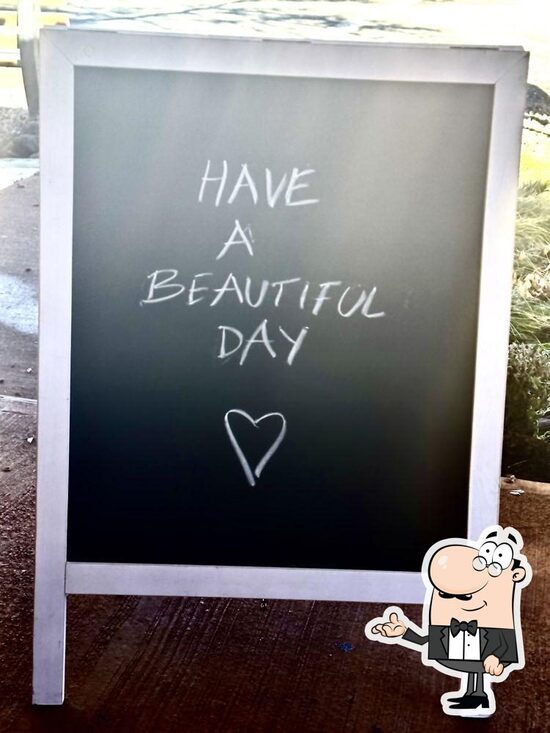 HAVE
A
BEAUTIFUL
DAY